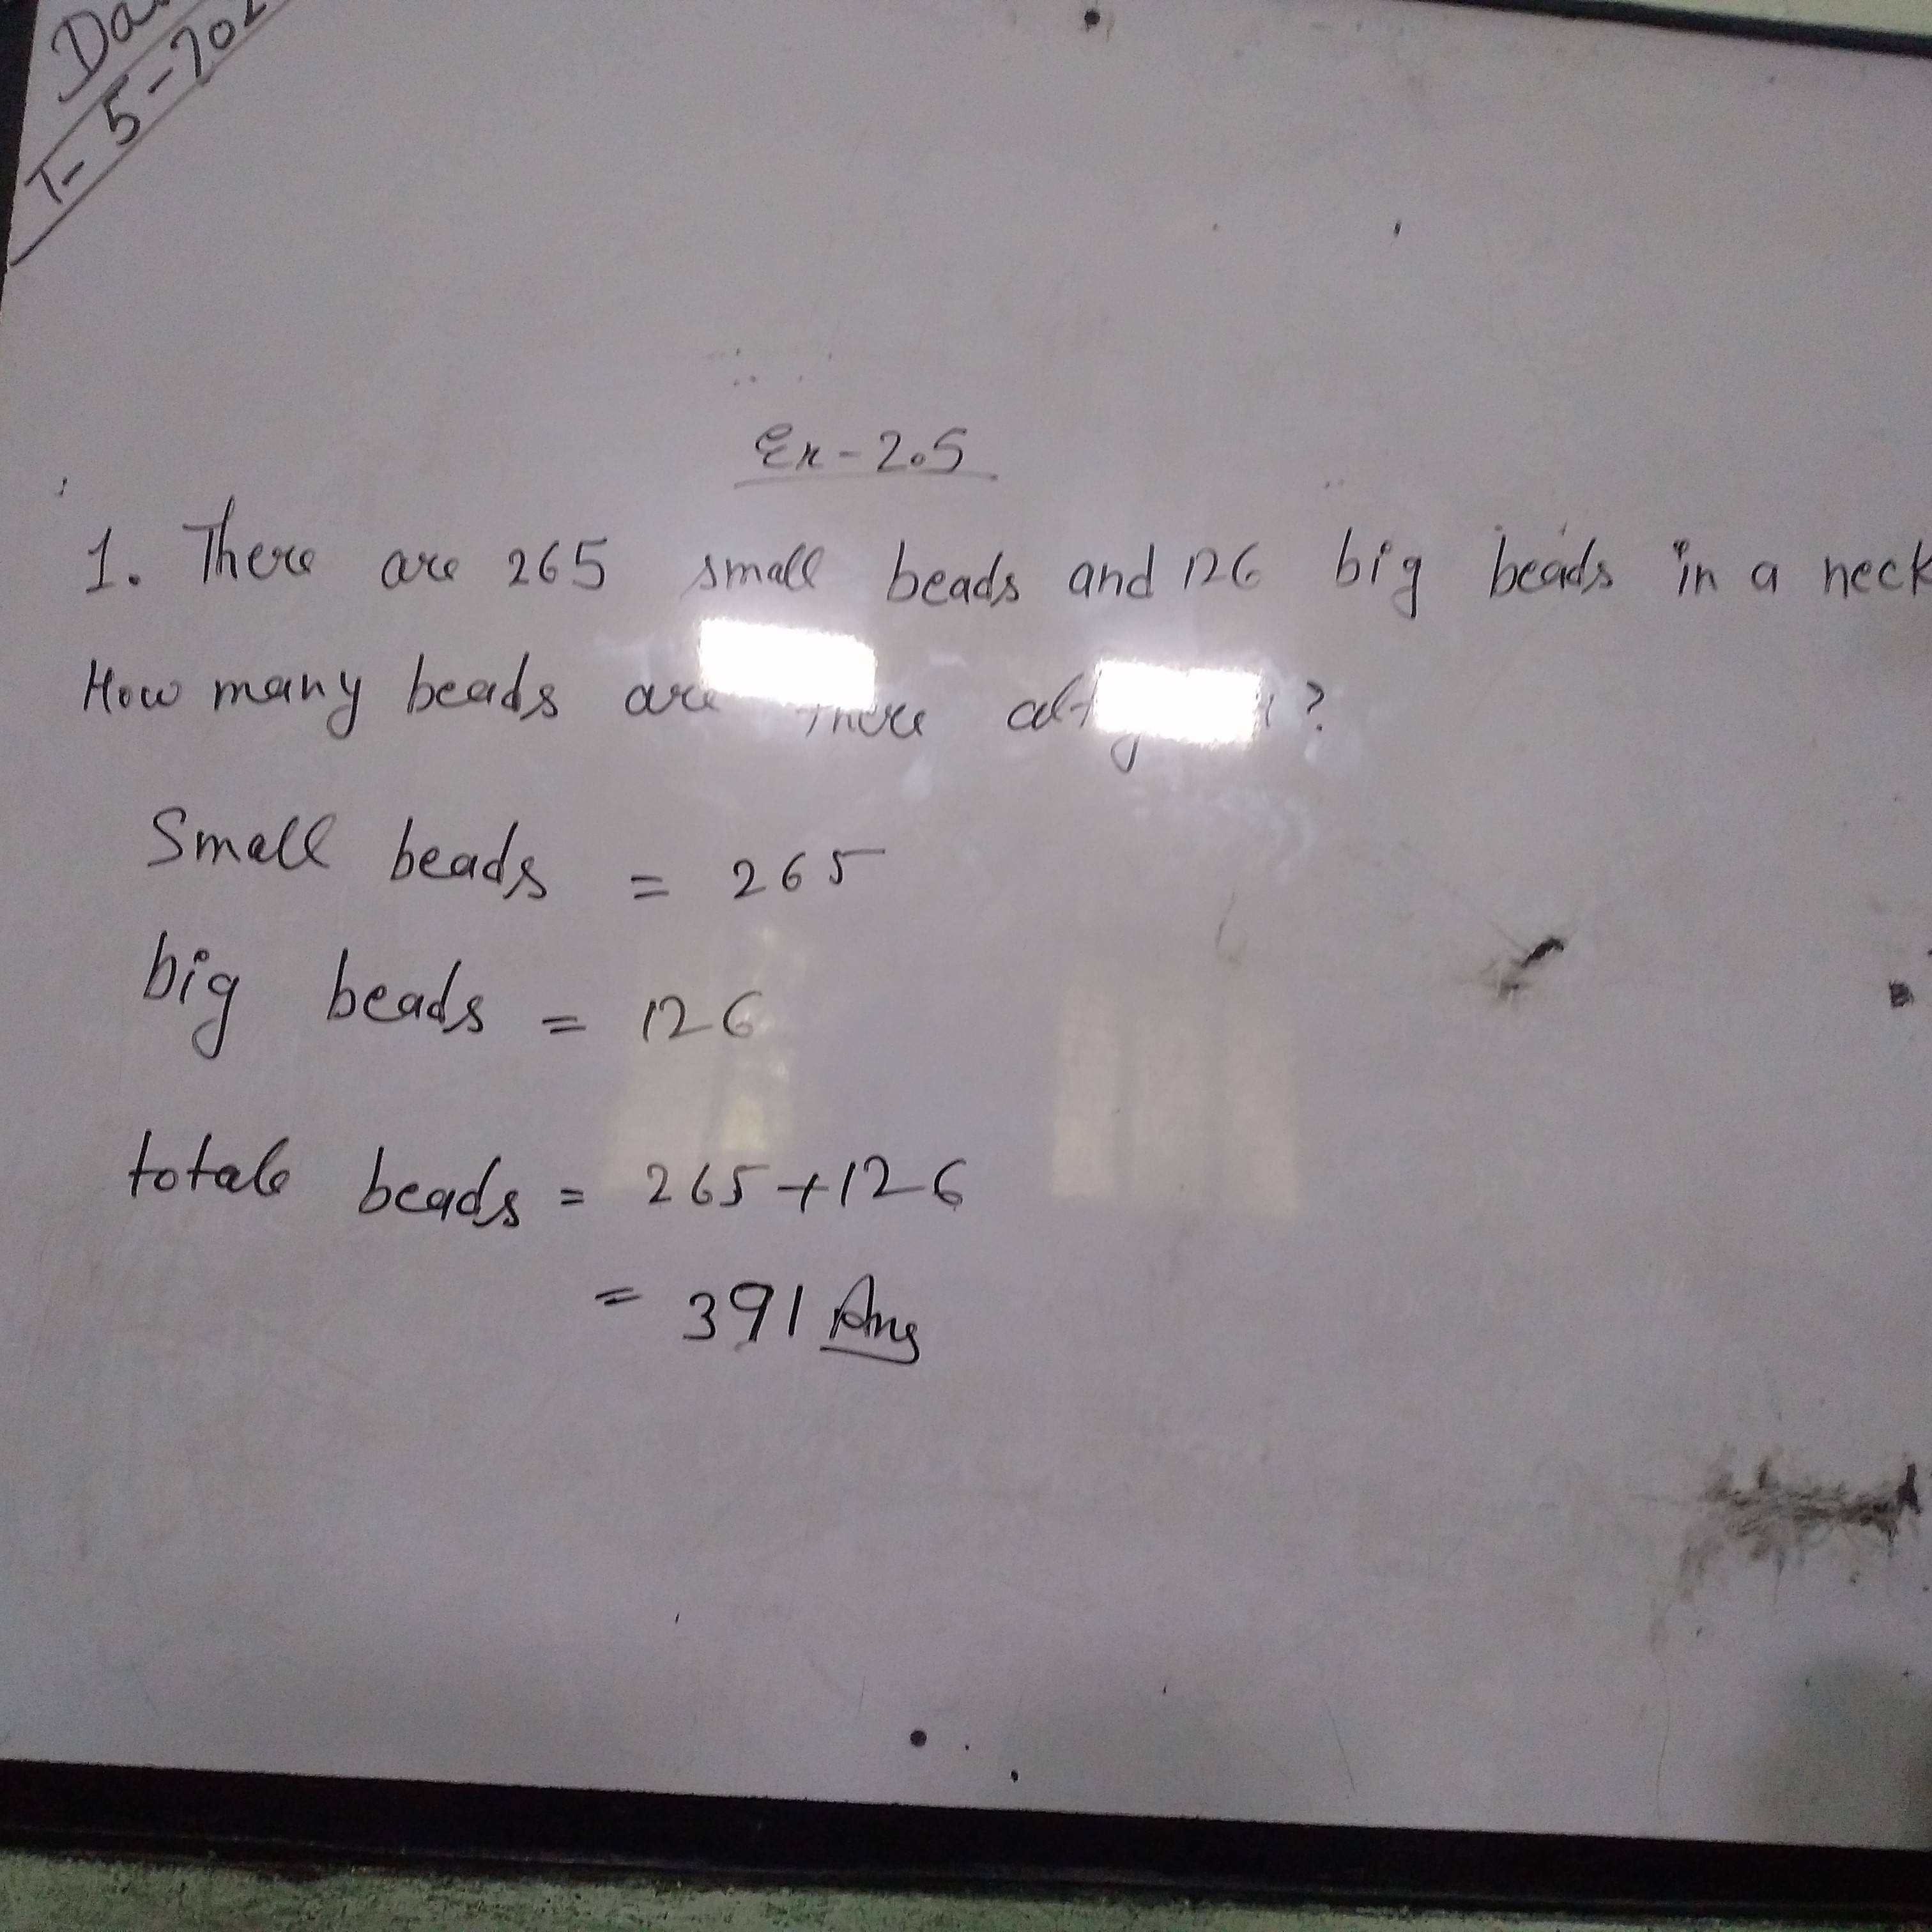 Ex-2.5
1. There are 265 small beads and 126 big beads in a neck
How many beads are there ?
Small beads = 265
big beads = 126
total beads = 265+126
= 391 Ans